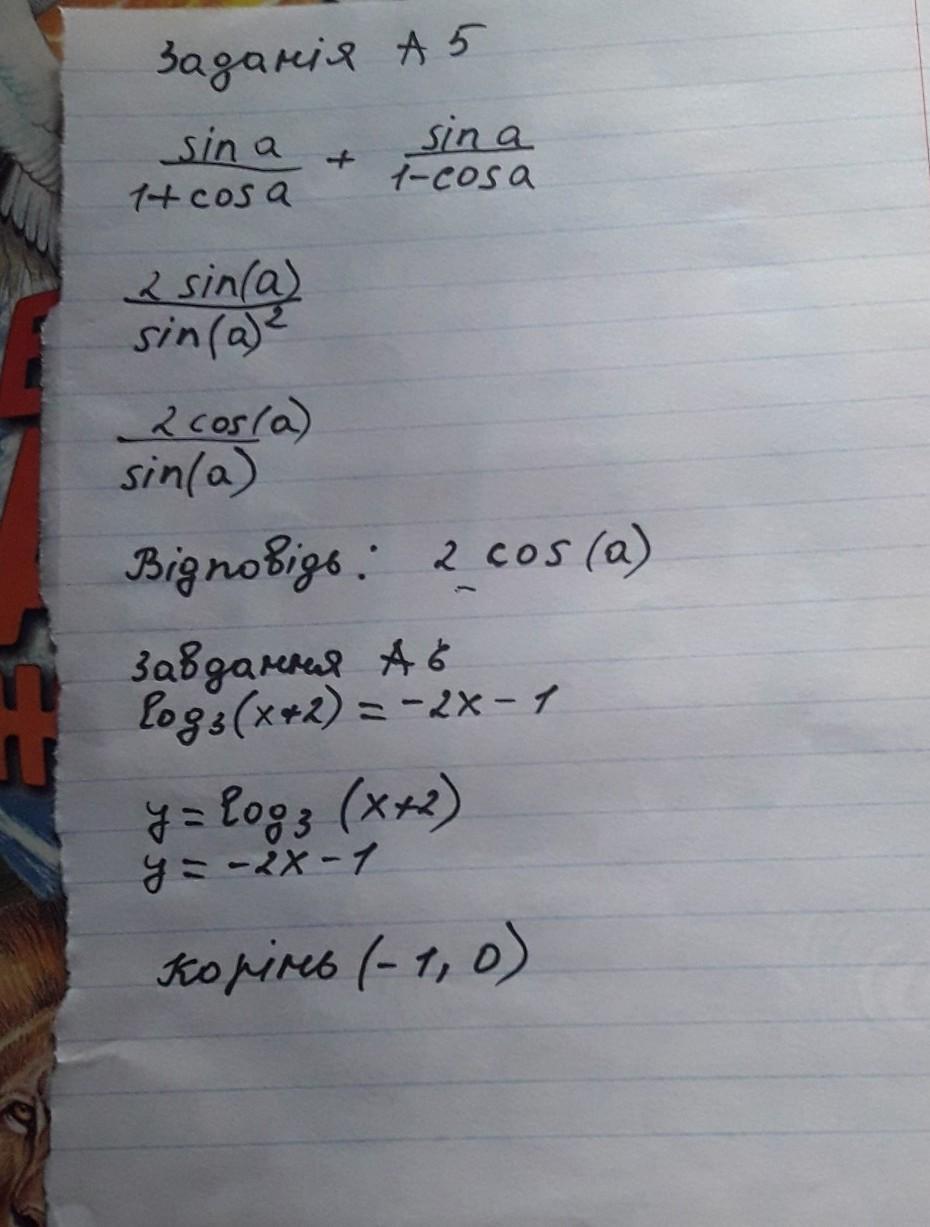 Заданія А 5
sin a / 1+cos a + sin a / 1-cos a
2 sin(a) / sin(a)²
2 cos(a) / sin(a)
Відповідь: 2 cos(a)
Завдання А 6
log₃(x+2) = -2x - 1
y = log₃ (x+2)
y = -2x - 1
корінь (-1, 0)